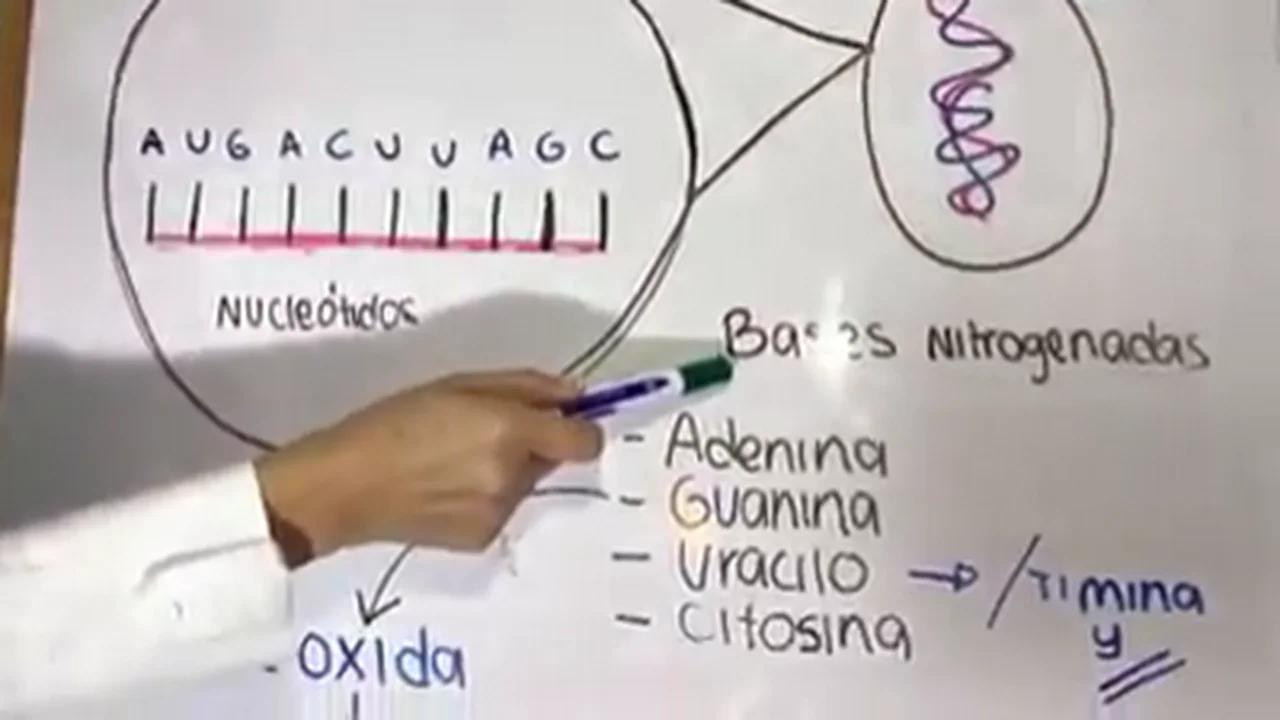 A U G A C U U A G C
Nucleótidos
Bases Nitrogenadas
- Adenina
- Guanina
- Uracilo → / Timina
- Citosina
y
- OXIda